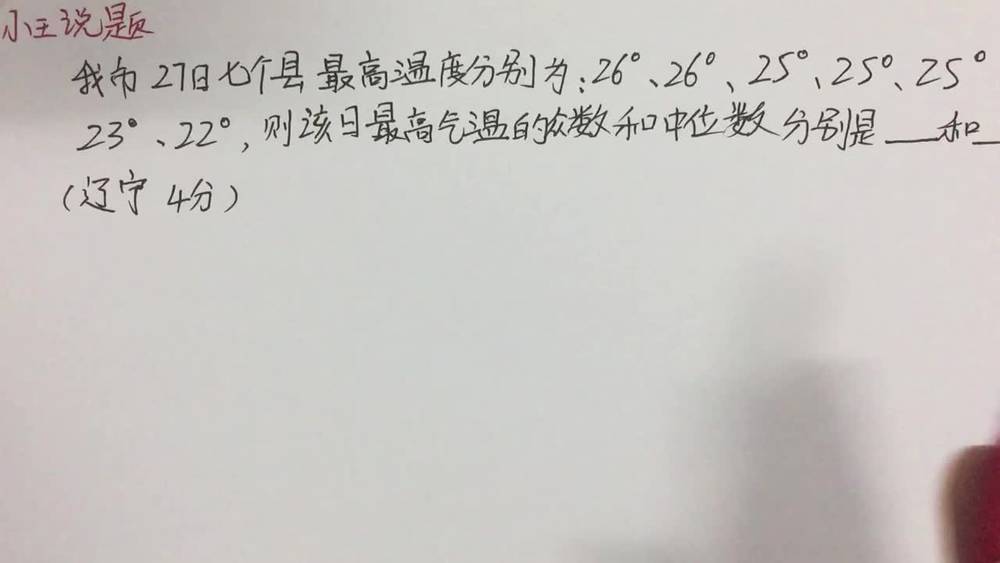 小王说题
我市27日七个县最高温度分别为:26°、26°、25°、25°、25°
23°、22°,则该日最高气温的众数和中位数分别是__和_
(辽宁 4分)